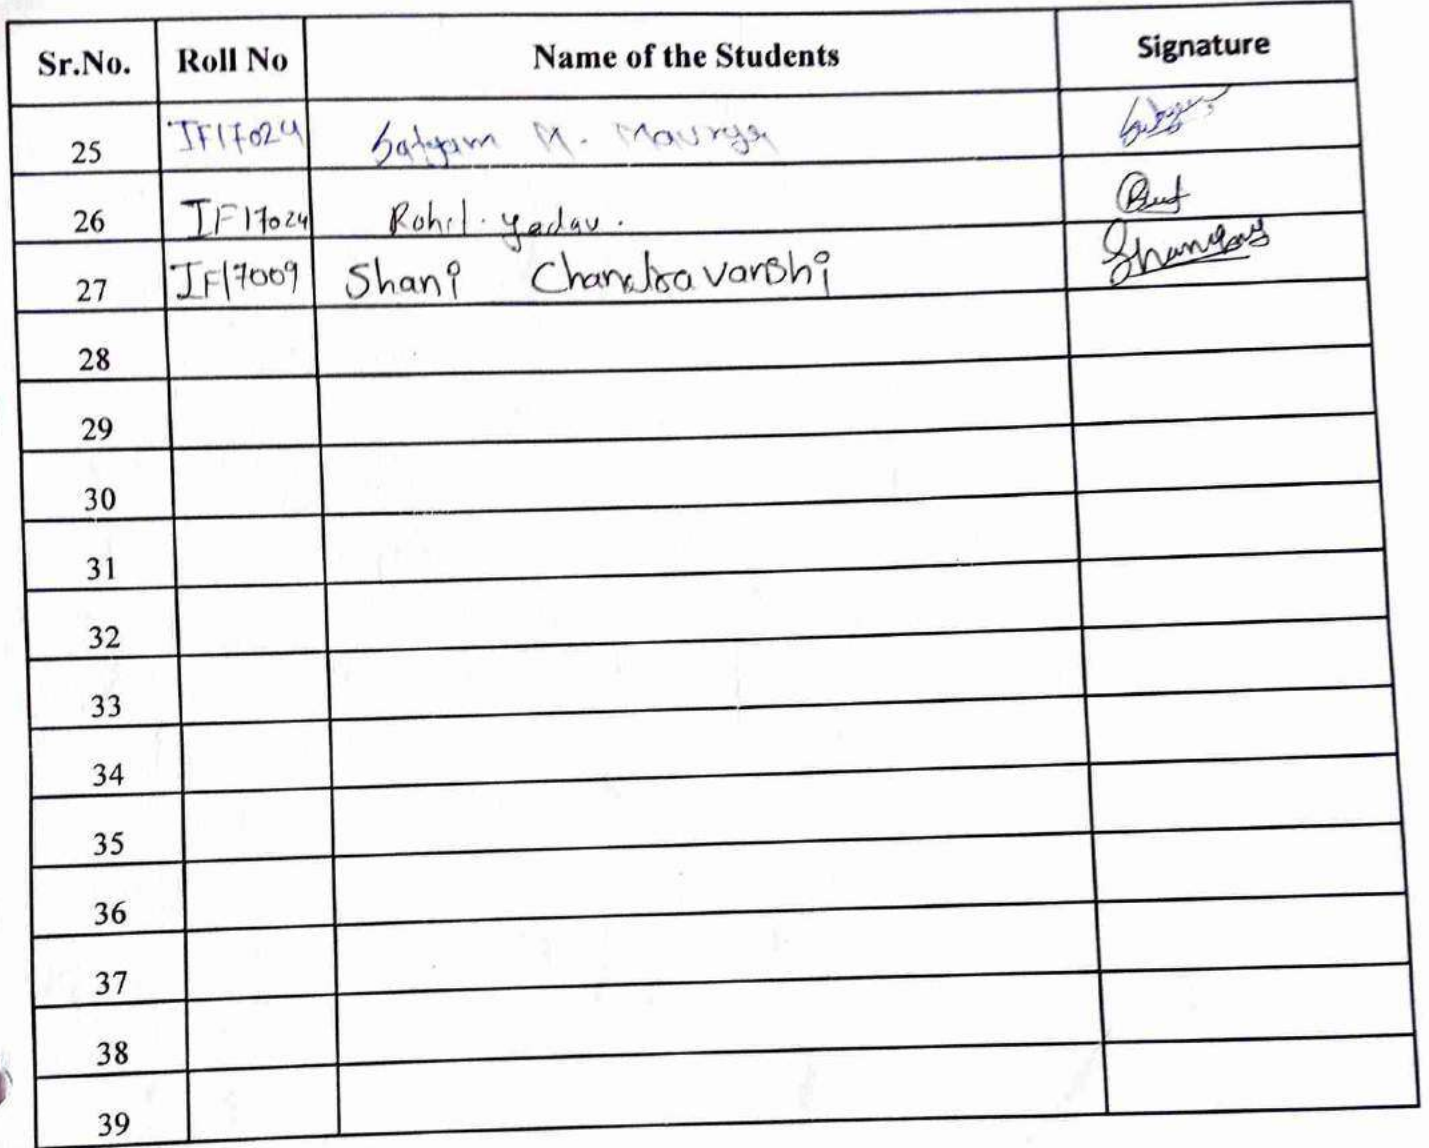 Sr.No. Roll No Name of the Students Signature
25 IF17024 Satyam M. Maurya
26 IF17024 Rohit Yadav.
27 IF17009 Shani Chandravanshi
28
29
30
31
32
33
34
35
36
37
38
39